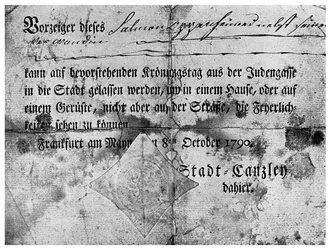 Vorzeiger dieses Salmon nebst seiner
kann auf bevorstehenden Krönungstag aus der Judengasse
in die Stadt gelassen werden, um in einem Hause, oder auf
einem Gerüste, nicht aber auf der Straße, die Feyerlich-
keiten sehen zu können.
Frankfurt am Mayn den 8ten October 1790.
Stadt-Canzley
dahier.